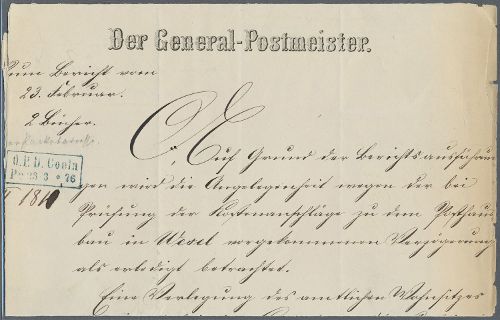 Der General-Postmeister.
Zum Bericht vom
23. Februar.
2 Bücher.
O.P.D. Coeln
Pr. 23 3 76
Auf Grund der Berichtsausführun
gen wird die Angelegenheit wegen der bei
Prüfung der Kostenanschläge zu dem Posthaus
bau in Wesel vorgekommenen Verzögerung
als erledigt betrachtet.
Eine Verlegung des amtlichen Wohnsitzes